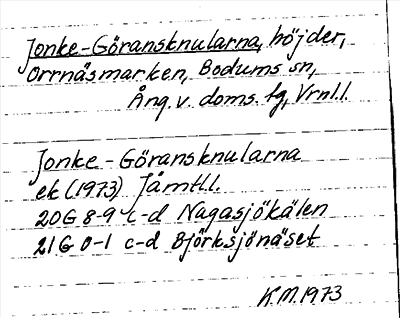 Jonke-Göransknularna, höjder,
Orrnäsmarken, Bodums sn,
Ång. v. doms. lg, Vrnl.l.
Jonke-Göransknularna
ek (1973) Jämtl.l.
20G 8-9 c-d Nagasjökälen
21G 0-1 c-d Björksjönäset
K.M. 1973